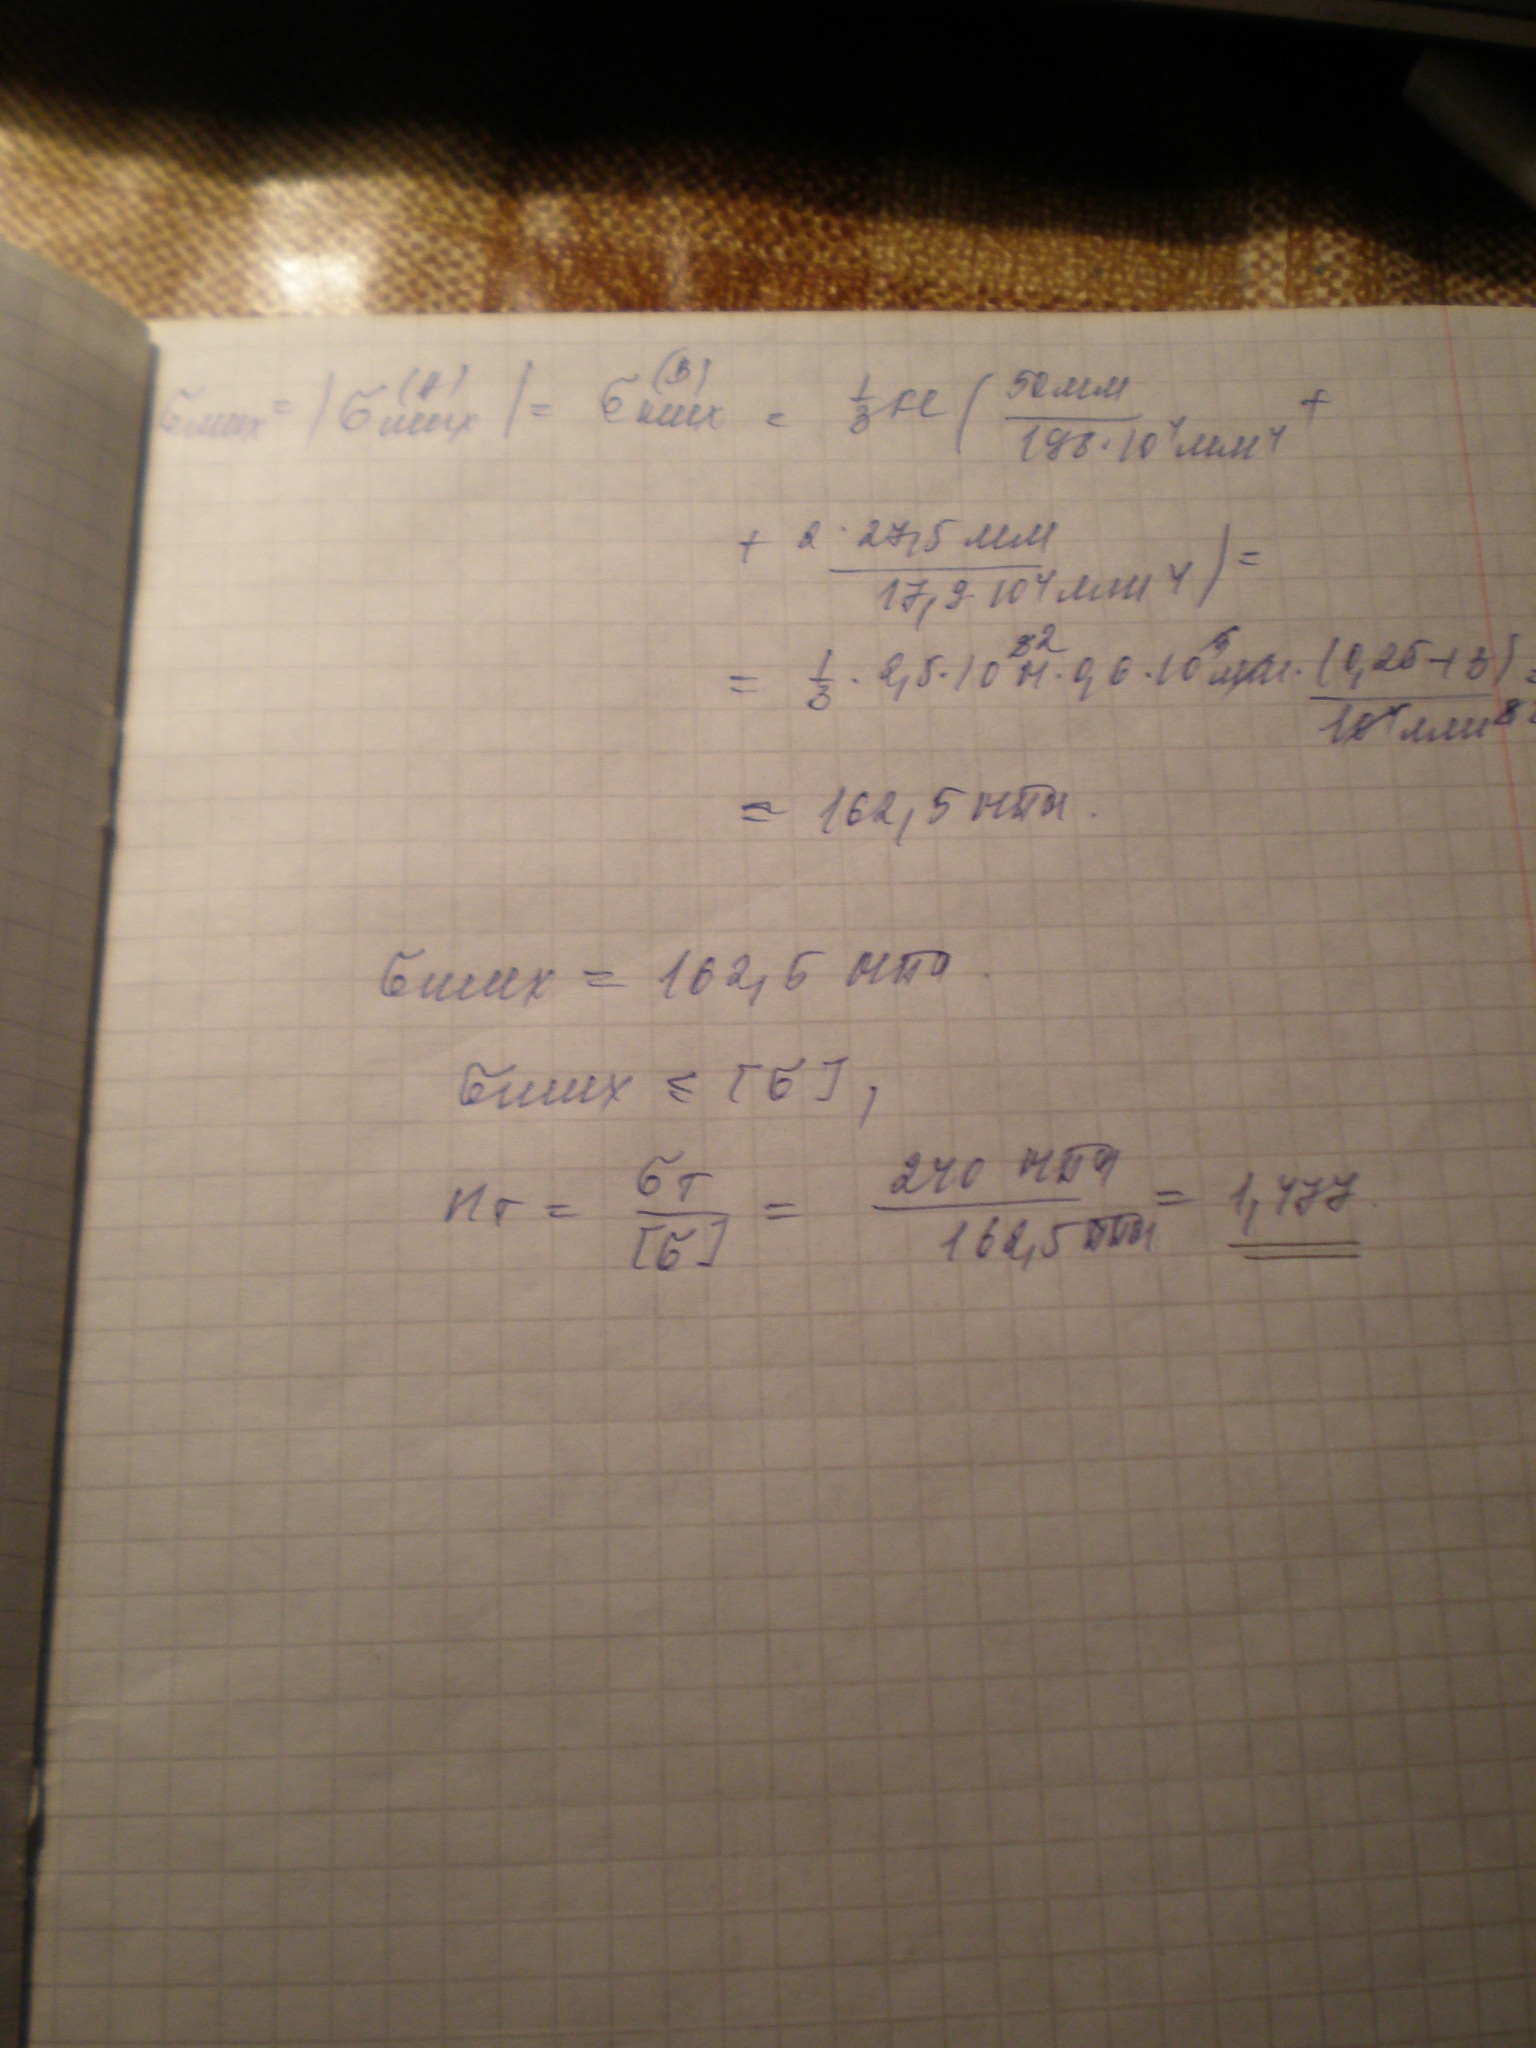 σmax = |σmax^(A)| = σmax^(B) = 1/3 Fl ( 50 мм / 198·10⁴ мм⁴ +
+ 2·27,5 мм / 17,9·10⁴ мм⁴ ) =
= 1/3 · 2,5·10² Н · 0,6·10³ мм · (0,25+3) / 10⁴ мм³ =
= 162,5 МПа.
σmax = 162,5 МПа.
σmax ≤ [σ],
nт = σт / [σ] = 240 МПа / 162,5 МПа = 1,477.